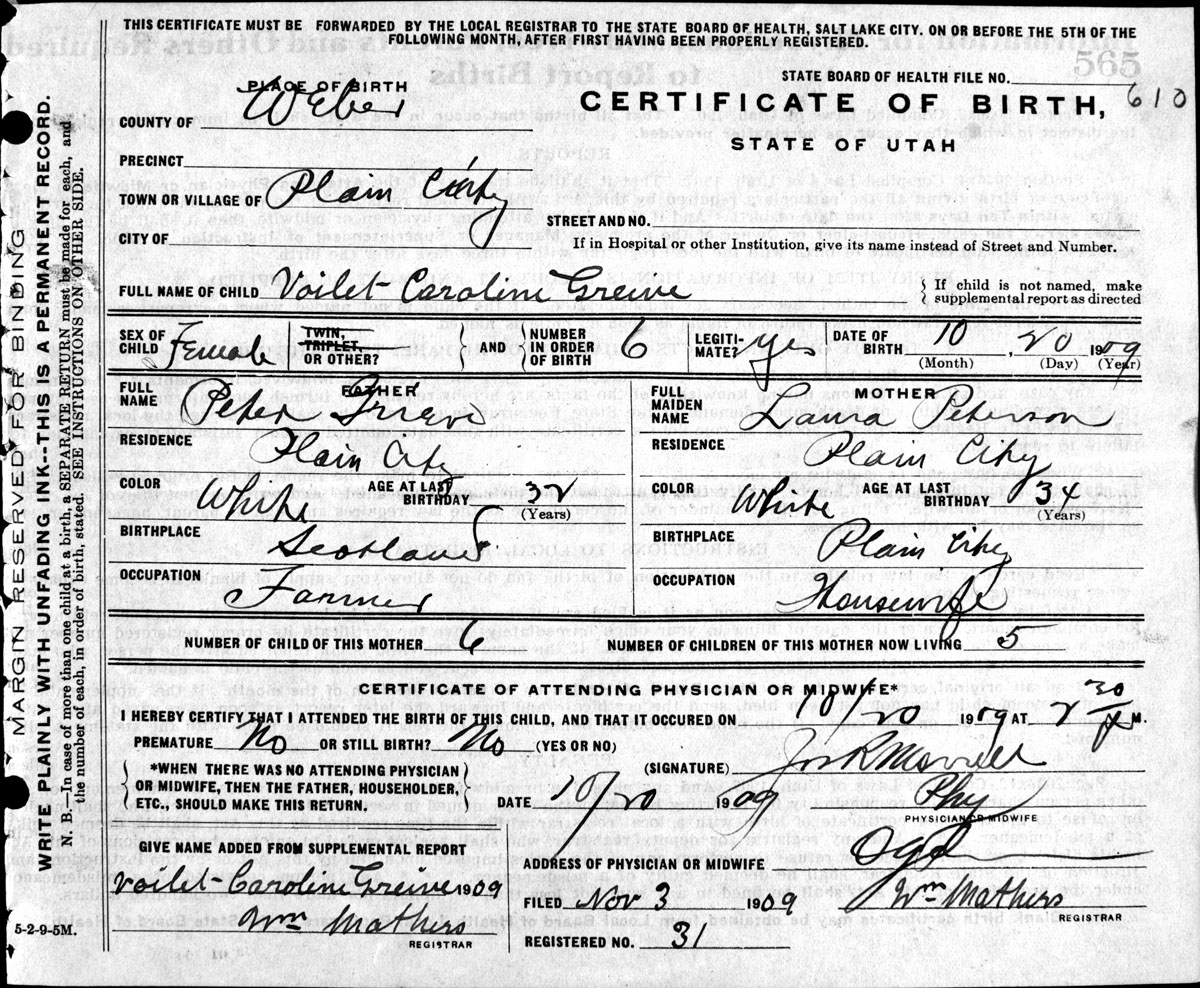 THIS CERTIFICATE MUST BE FORWARDED BY THE LOCAL REGISTRAR TO THE STATE BOARD OF HEALTH, SALT LAKE CITY. ON OR BEFORE THE 5TH OF THE
FOLLOWING MONTH, AFTER FIRST HAVING BEEN PROPERLY REGISTERED.
STATE BOARD OF HEALTH FILE NO. 610
PLACE OF BIRTH
CERTIFICATE OF BIRTH,
STATE OF UTAH
COUNTY OF Weber
PRECINCT
TOWN OR VILLAGE OF Plain City
STREET AND NO.
CITY OF
If in Hospital or other Institution, give its name instead of Street and Number.
FULL NAME OF CHILD Voilet Caroline Greive { If child is not named, make
supplemental report as directed
SEX OF CHILD Female TWIN, TRIPLET, OR OTHER? } AND { NUMBER IN ORDER OF BIRTH 6 LEGITI-MATE? Yes DATE OF BIRTH 10, 20 1909
(Month) (Day) (Year)
FATHER
FULL NAME Peter Grieve
RESIDENCE Plain City
COLOR White AGE AT LAST BIRTHDAY 32 (Years)
BIRTHPLACE Scotland
OCCUPATION Farmer
MOTHER
FULL MAIDEN NAME Laura Peterson
RESIDENCE Plain City
COLOR White AGE AT LAST BIRTHDAY 34 (Years)
BIRTHPLACE Plain City
OCCUPATION Housewife
NUMBER OF CHILD OF THIS MOTHER 6 NUMBER OF CHILDREN OF THIS MOTHER NOW LIVING 5
CERTIFICATE OF ATTENDING PHYSICIAN OR MIDWIFE*
I HEREBY CERTIFY THAT I ATTENDED THE BIRTH OF THIS CHILD, AND THAT IT OCCURED ON 10/20 1909 AT 2 30 M.
PREMATURE No OR STILL BIRTH? No (YES OR NO)
(SIGNATURE) Jos R Morrell
{ *WHEN THERE WAS NO ATTENDING PHYSICIAN
OR MIDWIFE, THEN THE FATHER, HOUSEHOLDER,
ETC., SHOULD MAKE THIS RETURN. }
DATE 10/20 1909 Phy
PHYSICIAN OR MIDWIFE
GIVE NAME ADDED FROM SUPPLEMENTAL REPORT
Voilet Caroline Greive 1909
Wm Mathers
REGISTRAR
ADDRESS OF PHYSICIAN OR MIDWIFE Ogd
FILED Nov 3 1909 Wm Mathers
REGISTRAR
REGISTERED NO. 31
5-2-9-5M.
MARGIN RESERVED FOR BINDING
WRITE PLAINLY WITH UNFADING INK--THIS IS A PERMANENT RECORD.
N. B.—In case of more than one child at a birth, a SEPARATE RETURN must be made for each, and
the number of each, in order of birth, stated. SEE INSTRUCTIONS ON OTHER SIDE.